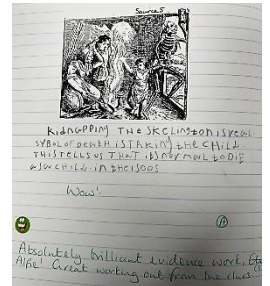 Source 5
Kidnapping THE SKElingtonisreal
SYBOLOFDEATH iSTAKing theCHILD.
THiSTEllS US THAT itsnormul toDiE
aswCHilD. in the1500s
Wow!
A
Absolutely brilliant evidence work,
Alfie! Great working out from the clues